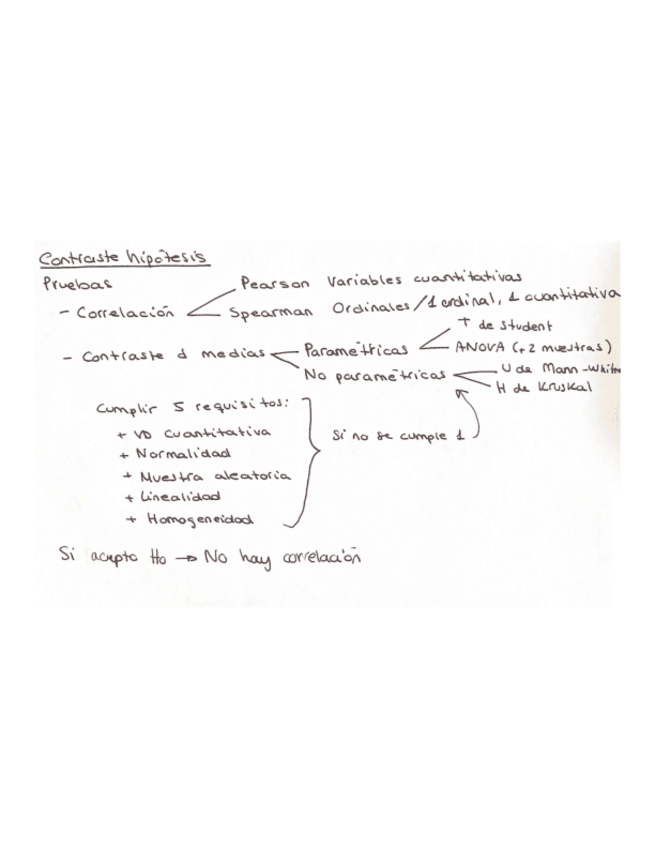 Contraste hipótesis
Pruebas
Pearson Variables cuantitativas
- Correlación
Spearman Ordinales/1 ordinal, 1 cuantitativa
T de Student
- Contraste d medias
Paramétricas
ANOVA (+2 muestras)
No paramétricas
U de Mann-Whitn
H de Kruskal
Cumplir 5 requisitos:
+ VD Cuantitativa
Si no se cumple 1
+ Normalidad
+ Muestra aleatoria
+ Linealidad
+ Homogeneidad
Si acepto Ho → No hay correlación